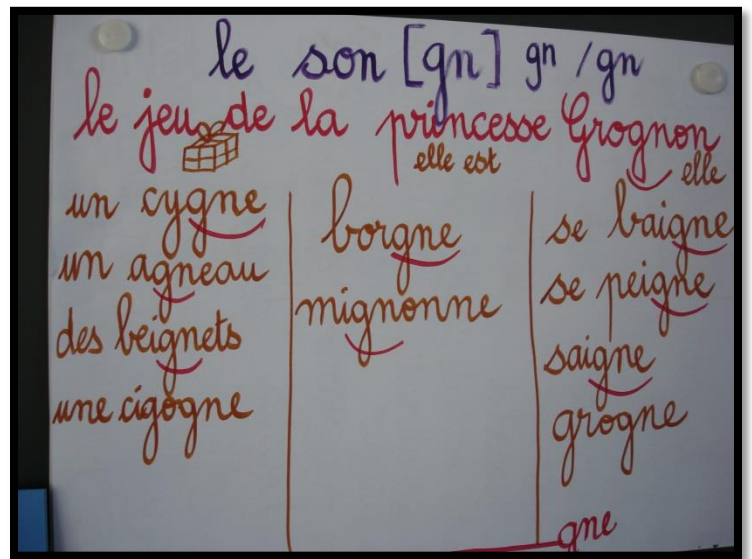 le son [gn] gn / gn
le jeu de la princesse Grognon
un cygne
un agneau
des beignets
une cigogne
elle est
borgne
mignonne
elle
se baigne
se peigne
saigne
grogne
gne